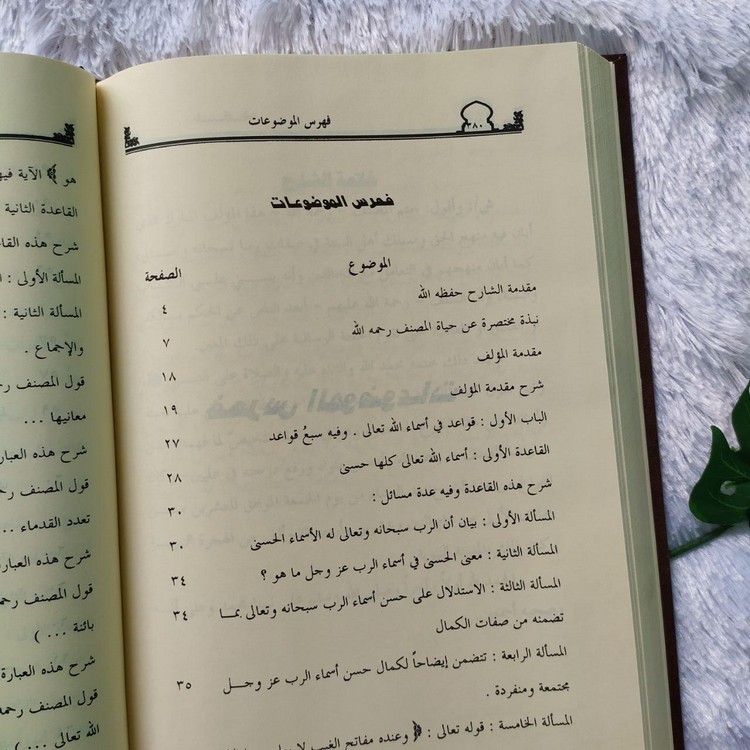 فهرس الموضوعات
٣٨٠
فهرس الموضوعات
الموضوع الصفحة
مقدمة الشارح حفظه الله ٤
نبذة مختصرة عن حياة المصنف رحمه الله ٧
مقدمة المؤلف ١٨
شرح مقدمة المؤلف ١٩
الباب الأول : قواعد في أسماء الله تعالى . وفيه سبعُ قواعد ٢٧
القاعدة الأولى : أسماء الله تعالى كلها حسنى ٢٨
شرح هذه القاعدة وفيه عدة مسائل : ٣٠
المسألة الأولى : بيان أن الرب سبحانه وتعالى له الأسماء الحسنى ٣٠
المسألة الثانية : معنى الحسنى في أسماء الرب عز وجل ما هو ؟ ٣٤
المسألة الثالثة : الاستدلال على حسن أسماء الرب سبحانه وتعالى بمـا ٣٤
تضمنه من صفات الكمال
المسألة الرابعة : تتضمن إيضاحاً لكمال حسن أسماء الرب عز وجـل ٣٥
مجتمعة ومنفردة .
المسألة الخامسة : قوله تعالى : ﴿ وعنده مفاتح الغيب لا
هو ﴾ الآية
القاعدة الثانية
شرح هذه
المسألة الأولى :
المسألة الثانية :
والإجماع .
قول المصنف
معانيها ...
شرح هذه
قول المصنف
تعدد القدماء ..
شرح هذه
قول المصنف
بائنة ... )
شرح هذه العبارة
قول المصنف
الله تعالى ... )